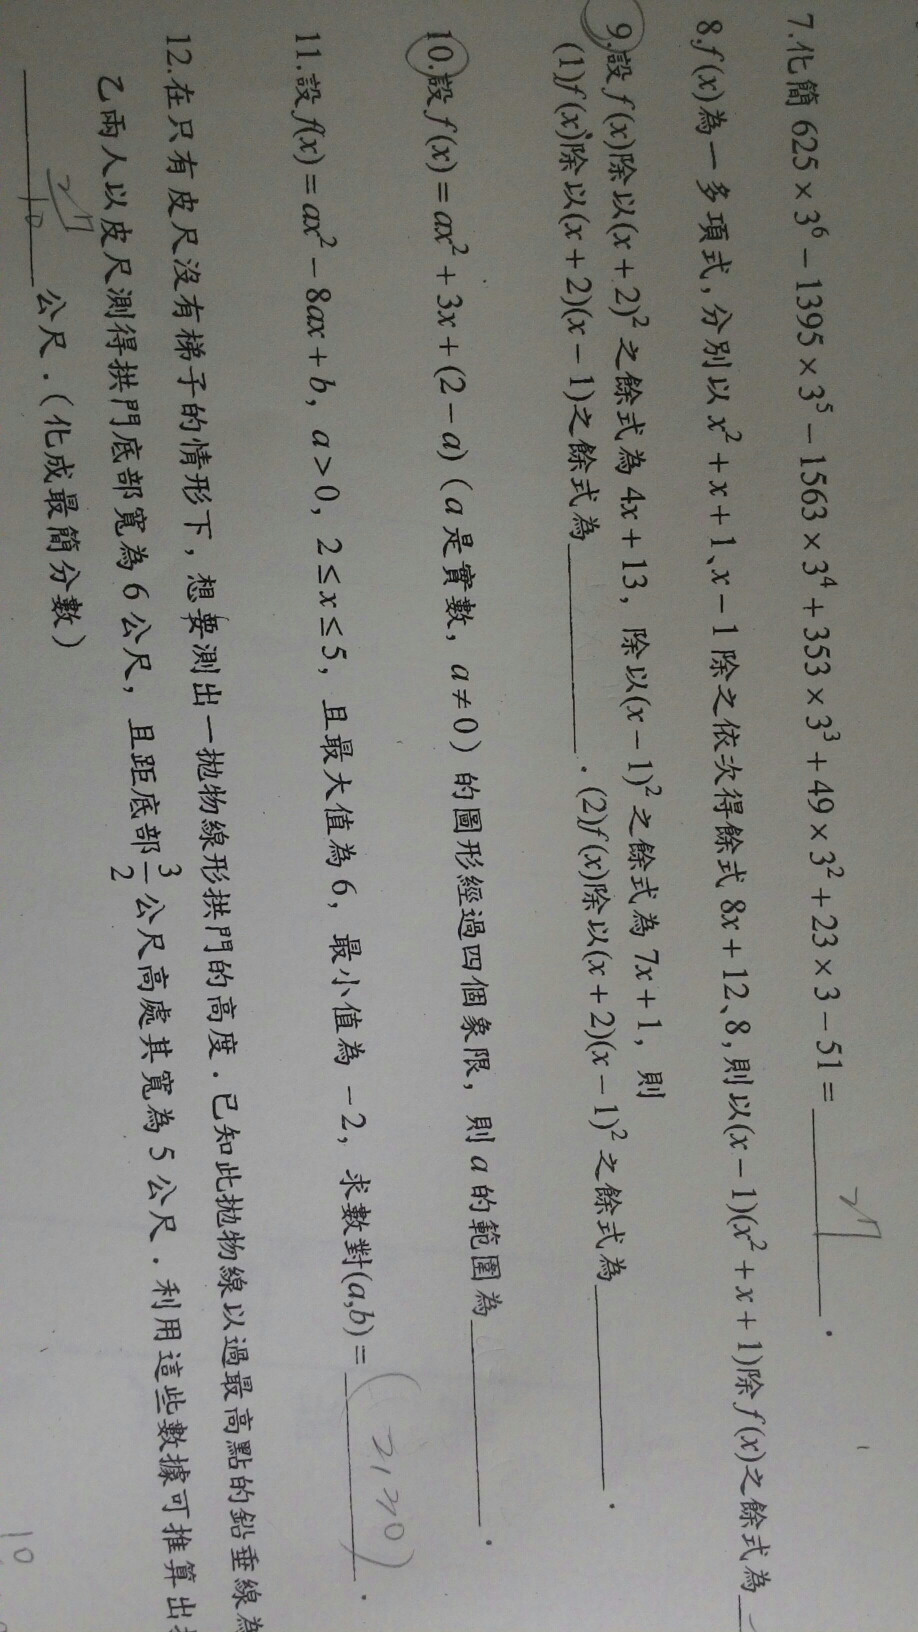 7.化簡 625 × 3⁶ − 1395 × 3⁵ − 1563 × 3⁴ + 353 × 3³ + 49 × 3² + 23 × 3 − 51 = ______.
8.f(x)為一多項式,分別以 x² + x + 1、x − 1 除之依次得餘式 8x + 12、8,則以(x − 1)(x² + x + 1)除 f(x)之餘式為
9.設 f(x)除以(x + 2)² 之餘式為 4x + 13, 除以(x − 1)² 之餘式為 7x + 1, 則
(1)f(x)除以(x + 2)(x − 1)之餘式為______. (2)f(x)除以(x + 2)(x − 1)² 之餘式為______.
10.設 f(x) = ax² + 3x + (2 − a)(a 是實數, a ≠ 0)的圖形經過四個象限, 則 a 的範圍為______.
11.設 f(x) = ax² − 8ax + b, a > 0, 2 ≤ x ≤ 5, 且最大值為 6, 最小值為 −2, 求數對(a,b) = ______.
12.在只有皮尺沒有梯子的情形下, 想要測出一拋物線形拱門的高度.已知此拋物線以過最高點的鉛垂線為
乙兩人以皮尺測得拱門底部寬為 6 公尺, 且距底部 3/2 公尺高處其寬為 5 公尺.利用這些數據可推算出
______公尺.(化成最簡分數)
10